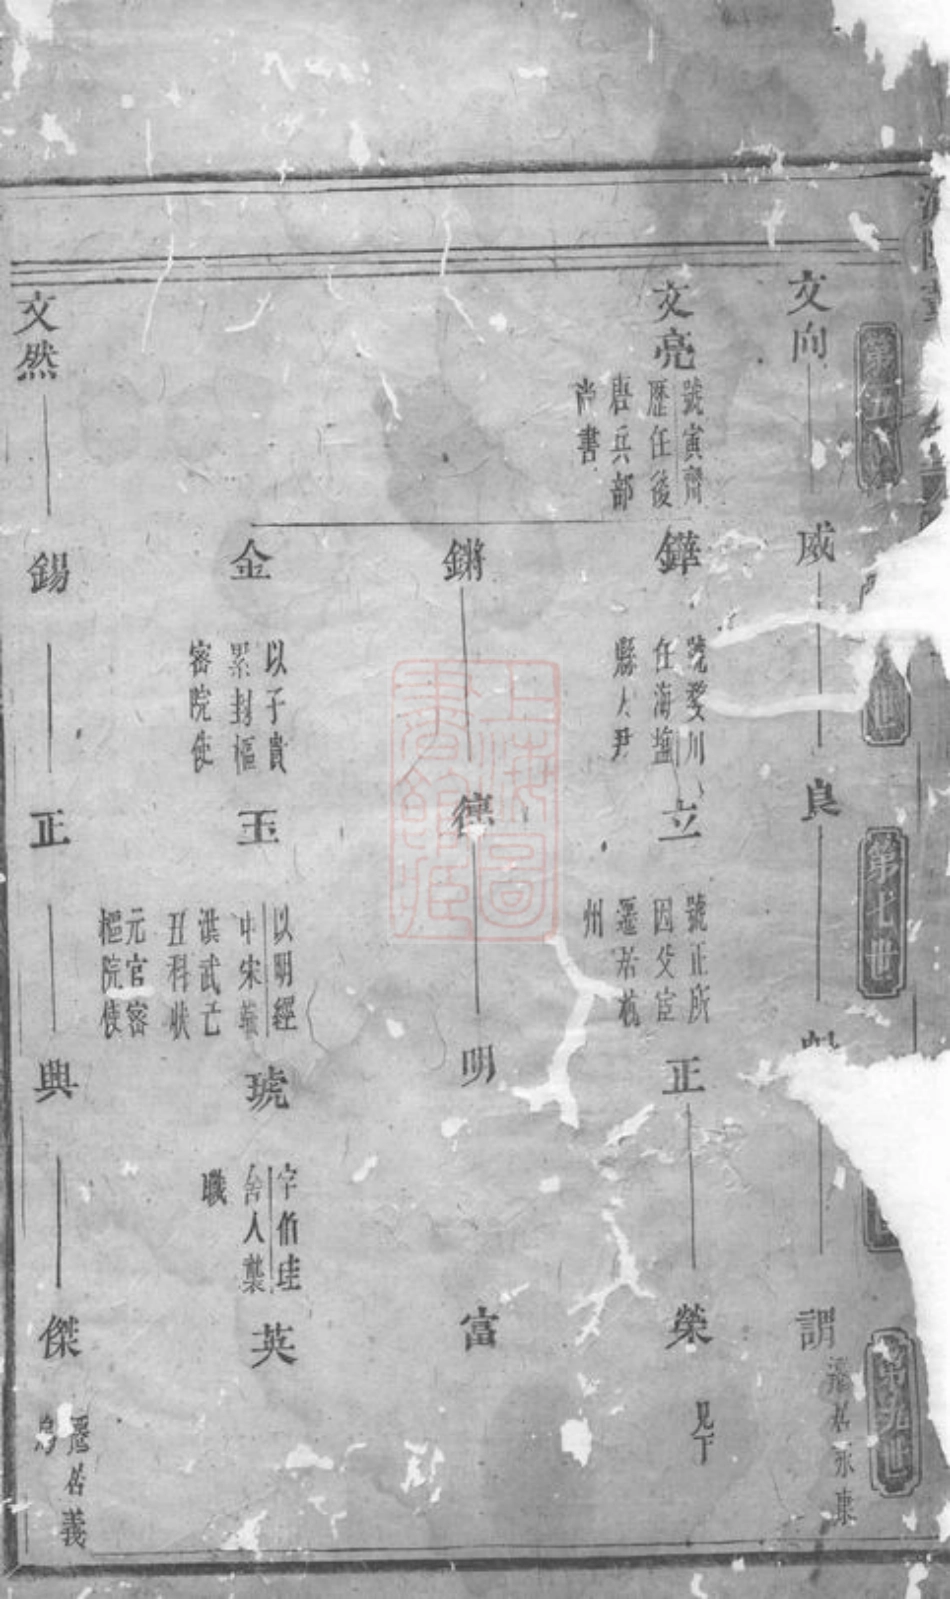 第五世
第七世
第九世
文向
威
良
謂
遷居永康
文亮
號寅齋
歷任後
唐兵部
尚書
鏵
號婺川
任海塩
縣大尹
立
號正所
因父宦
遷居杭
州
正
榮
見下
鏘
德
明
富
金
以子貴
累封樞
密院使
玉
以明經
中宋
洪武乙
丑科狀
元官密
樞院使
琥
字伯珪
舍人襲
職
英
文然
錫
正
典
傑
遷居義
烏
上海圖書館藏